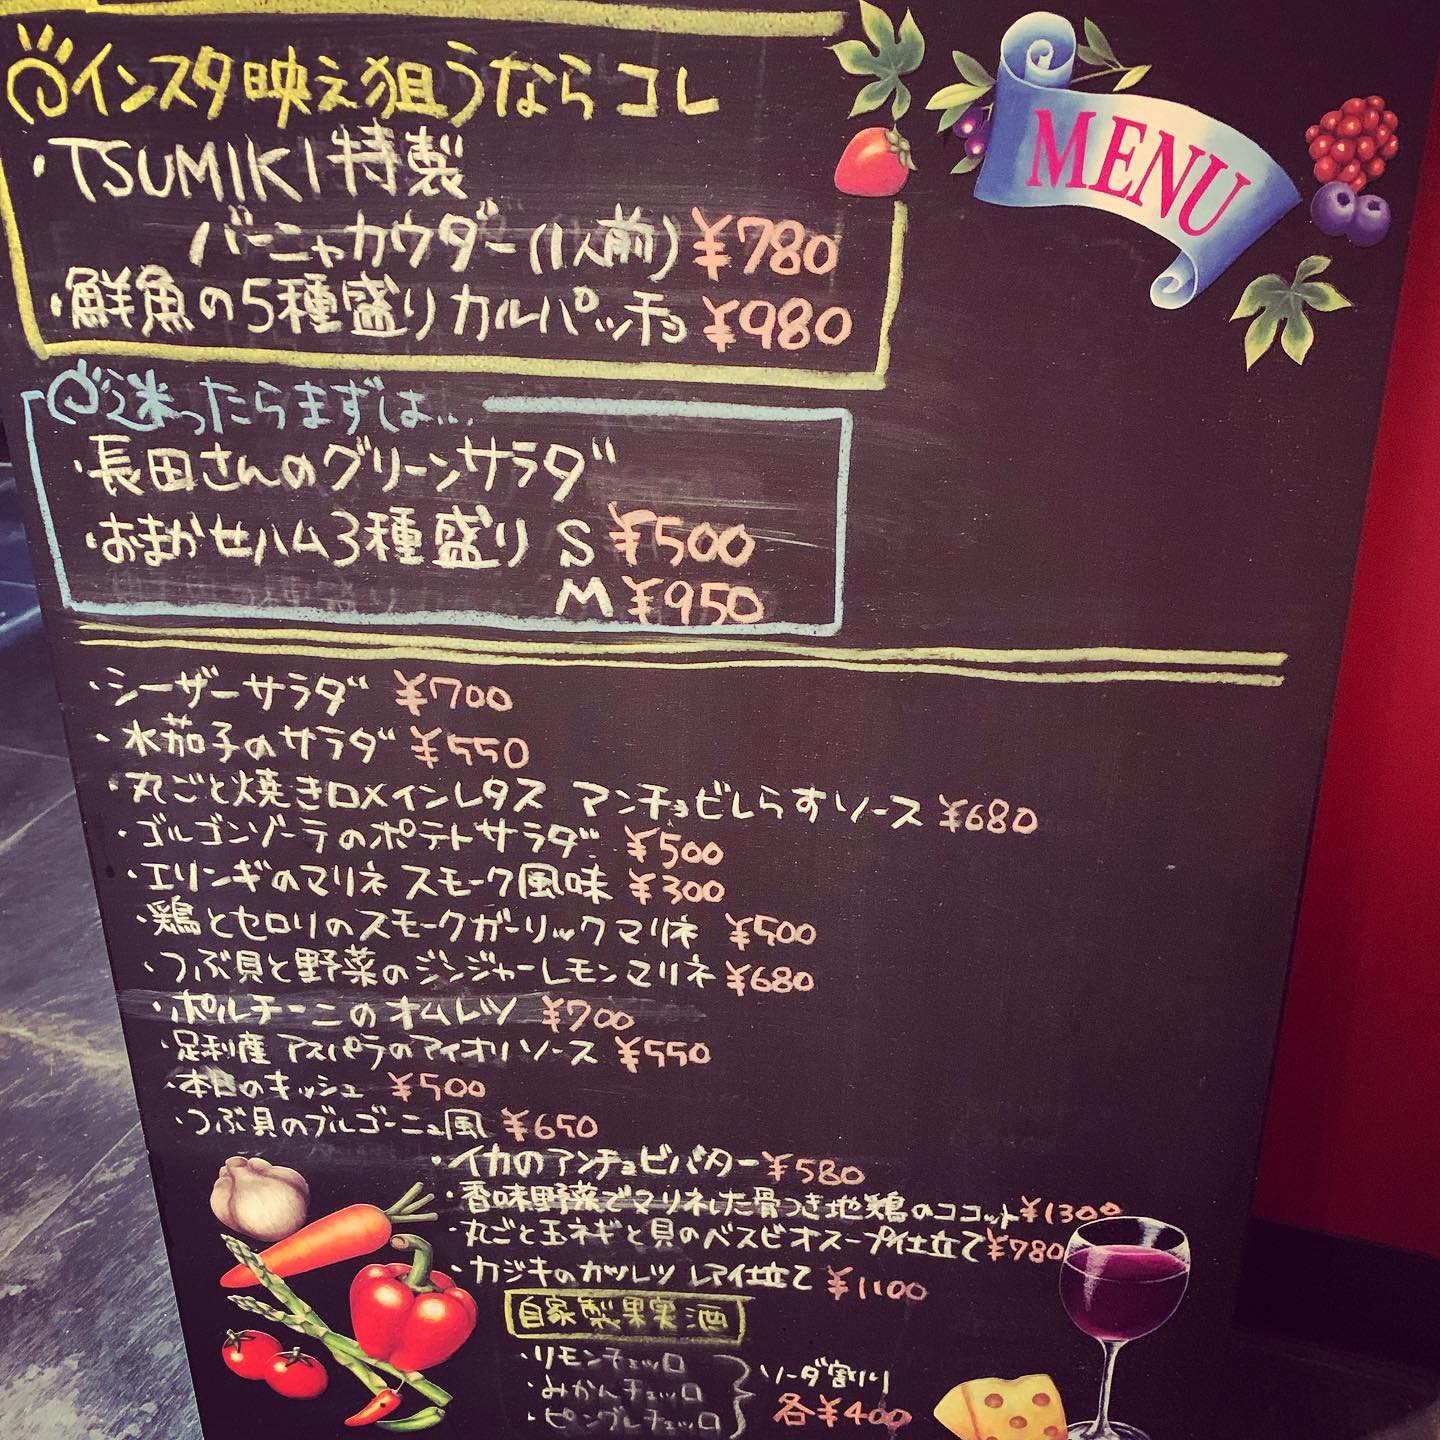 インスタ映え狙うならコレ
MENU
・TSUMIKI特製
バーニャカウダー(1人前) ¥780
・鮮魚の5種盛りカルパッチョ ¥980
迷ったらまずは...
・長田さんのグリーンサラダ
・おまかせハム3種盛り S ¥500
M ¥950
・シーザーサラダ ¥700
・水茄子のサラダ ¥550
・丸ごと焼きロメインレタス アンチョビしらすソース ¥680
・ゴルゴンゾーラのポテトサラダ ¥500
・エリンギのマリネ スモーク風味 ¥300
・鶏とセロリのスモークガーリックマリネ ¥500
・つぶ貝と野菜のジンジャーレモンマリネ ¥680
・ポルチーニのオムレツ ¥700
・足利産 アスパラのアイオリソース ¥550
・本日のキッシュ ¥500
・つぶ貝のブルゴーニュ風 ¥650
・イカのアンチョビバター ¥580
・香味野菜でマリネした骨つき地鶏のココット ¥1300
・丸ごと玉ネギと貝のベスビオスープ仕立て ¥780
・カジキのカツレツ レア仕立て ¥1100
自家製果実酒
・リモンチェッロ
・みかんチェッロ
・ピングレチェッロ
ソーダ割り
各¥400